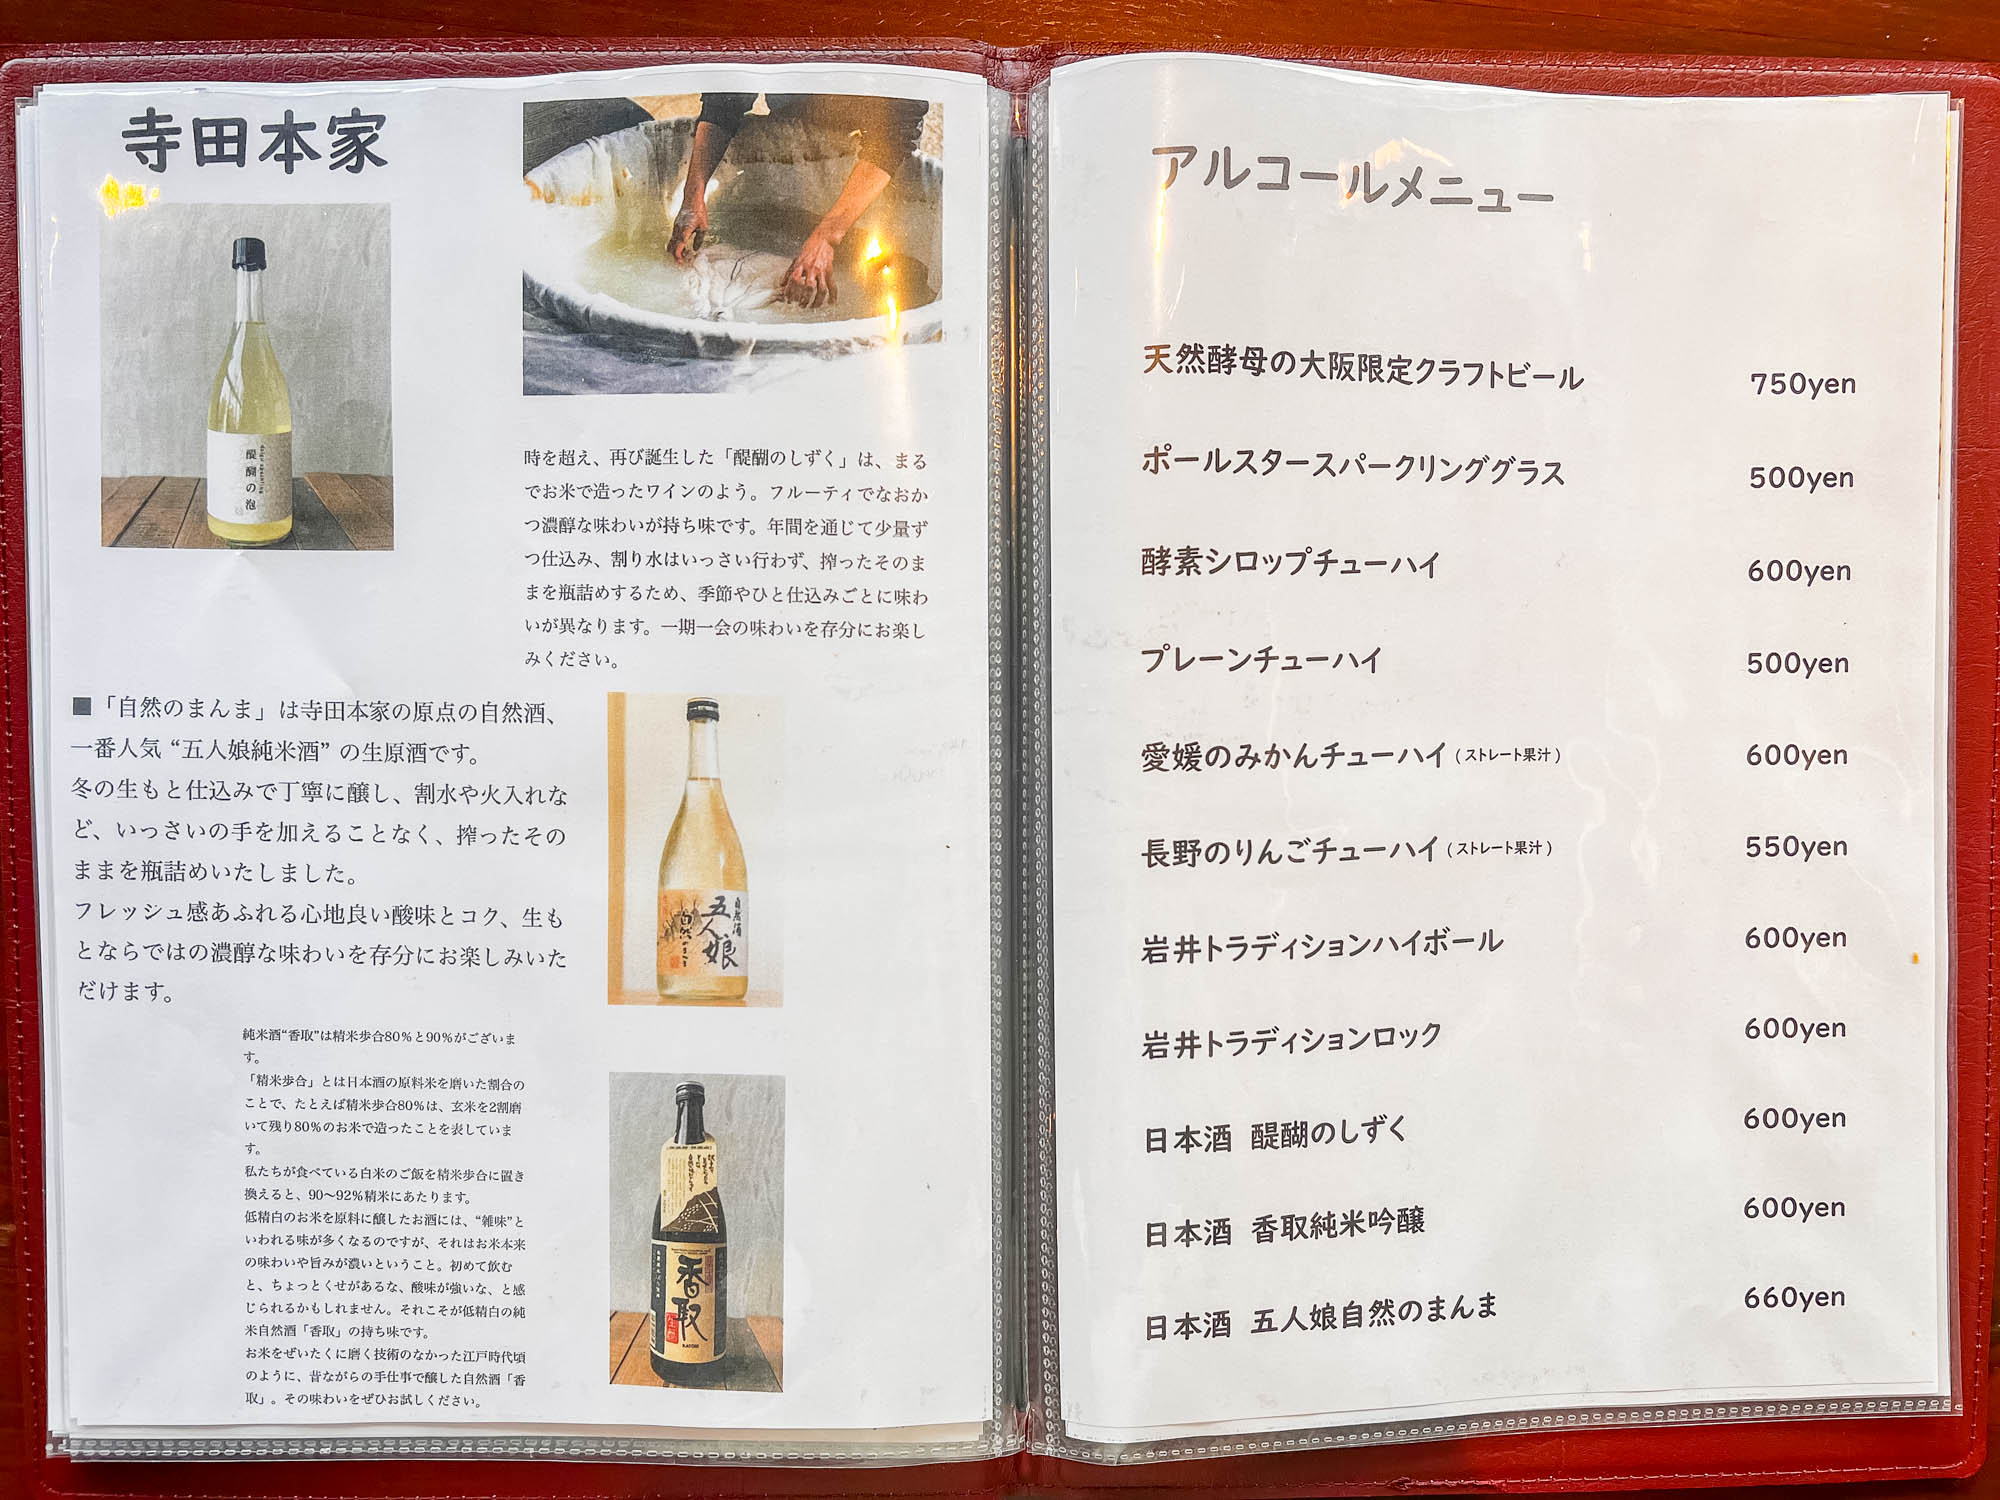 寺田本家
醍醐の泡
時を超え、再び誕生した「醍醐のしずく」は、まる
でお米で造ったワインのよう。フルーティでなおか
つ濃醇な味わいが持ち味です。年間を通じて少量ず
つ仕込み、割り水はいっさい行わず、搾ったそのま
まを瓶詰めするため、季節やひと仕込みごとに味わ
いが異なります。一期一会の味わいを存分にお楽し
みください。
■「自然のまんま」は寺田本家の原点の自然酒、
一番人気 “五人娘純米酒” の生原酒です。
冬の生もと仕込みで丁寧に醸し、割水や火入れな
ど、いっさいの手を加えることなく、搾ったその
ままを瓶詰めいたしました。
フレッシュ感あふれる心地良い酸味とコク、生も
とならではの濃醇な味わいを存分にお楽しみいた
だけます。
自然酒
五人娘
自然のまんま
純米酒“香取”は精米歩合80％と90％がございま
す。
「精米歩合」とは日本酒の原料米を磨いた割合の
ことで、たとえば精米歩合80％は、玄米を2割磨
いて残り80％のお米で造ったことを表していま
す。
私たちが食べている白米のご飯を精米歩合に置き
換えると、90〜92％精米にあたります。
低精白のお米を原料に醸したお酒には、“雑味”と
いわれる味が多くなるのですが、それはお米本来
の味わいや旨みが濃いということ。初めて飲む
と、ちょっとくせがあるな、酸味が強いな、と感
じられるかもしれません。それこそが低精白の純
米自然酒「香取」の持ち味です。
お米をぜいたくに磨く技術のなかった江戸時代頃
のように、昔ながらの手仕事で醸した自然酒「香
取」。その味わいをぜひお試しください。
香取
KATORI
アルコールメニュー
天然酵母の大阪限定クラフトビール 750yen
ポールスタースパークリンググラス 500yen
酵素シロップチューハイ 600yen
プレーンチューハイ 500yen
愛媛のみかんチューハイ(ストレート果汁) 600yen
長野のりんごチューハイ(ストレート果汁) 550yen
岩井トラディションハイボール 600yen
岩井トラディションロック 600yen
日本酒 醍醐のしずく 600yen
日本酒 香取純米吟醸 600yen
日本酒 五人娘自然のまんま 660yen